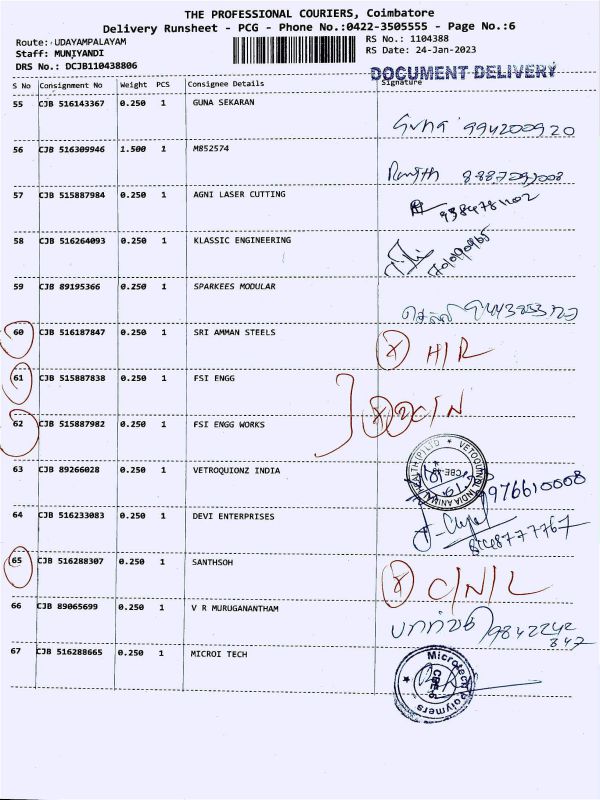 THE PROFESSIONAL COURIERS, Coimbatore
Delivery Runsheet - PCG - Phone No.:0422-3505555 - Page No.:6
Route: UDAYAMPALAYAM
RS No.: 1104388
Staff: MUNIYANDI
RS Date: 24-Jan-2023
DRS No.: DCJB110438806
DOCUMENT DELIVERY
S No Consignment No Weight PCS Consignee Details Signature
55 CJB 516143367 0.250 1 GUNA SEKARAN
Guna 994200920
56 CJB 516309946 1.500 1 M852574
57 CJB 515887984 0.250 1 AGNI LASER CUTTING
58 CJB 516264093 0.250 1 KLASSIC ENGINEERING
59 CJB 89195366 0.250 1 SPARKEES MODULAR
60 CJB 516187847 0.250 1 SRI AMMAN STEELS
X H/R
61 CJB 515887838 0.250 1 FSI ENGG
X 2 C/N
62 CJB 515887982 0.250 1 FSI ENGG WORKS
63 CJB 89266028 0.250 1 VETROQUIONZ INDIA
9976610008
64 CJB 516233083 0.250 1 DEVI ENTERPRISES
65 CJB 516288307 0.250 1 SANTHSOH
X C/N/L
66 CJB 89065699 0.250 1 V R MURUGANANTHAM
9842242
847
67 CJB 516288665 0.250 1 MICROI TECH
Microtech Polymers
CBE-6